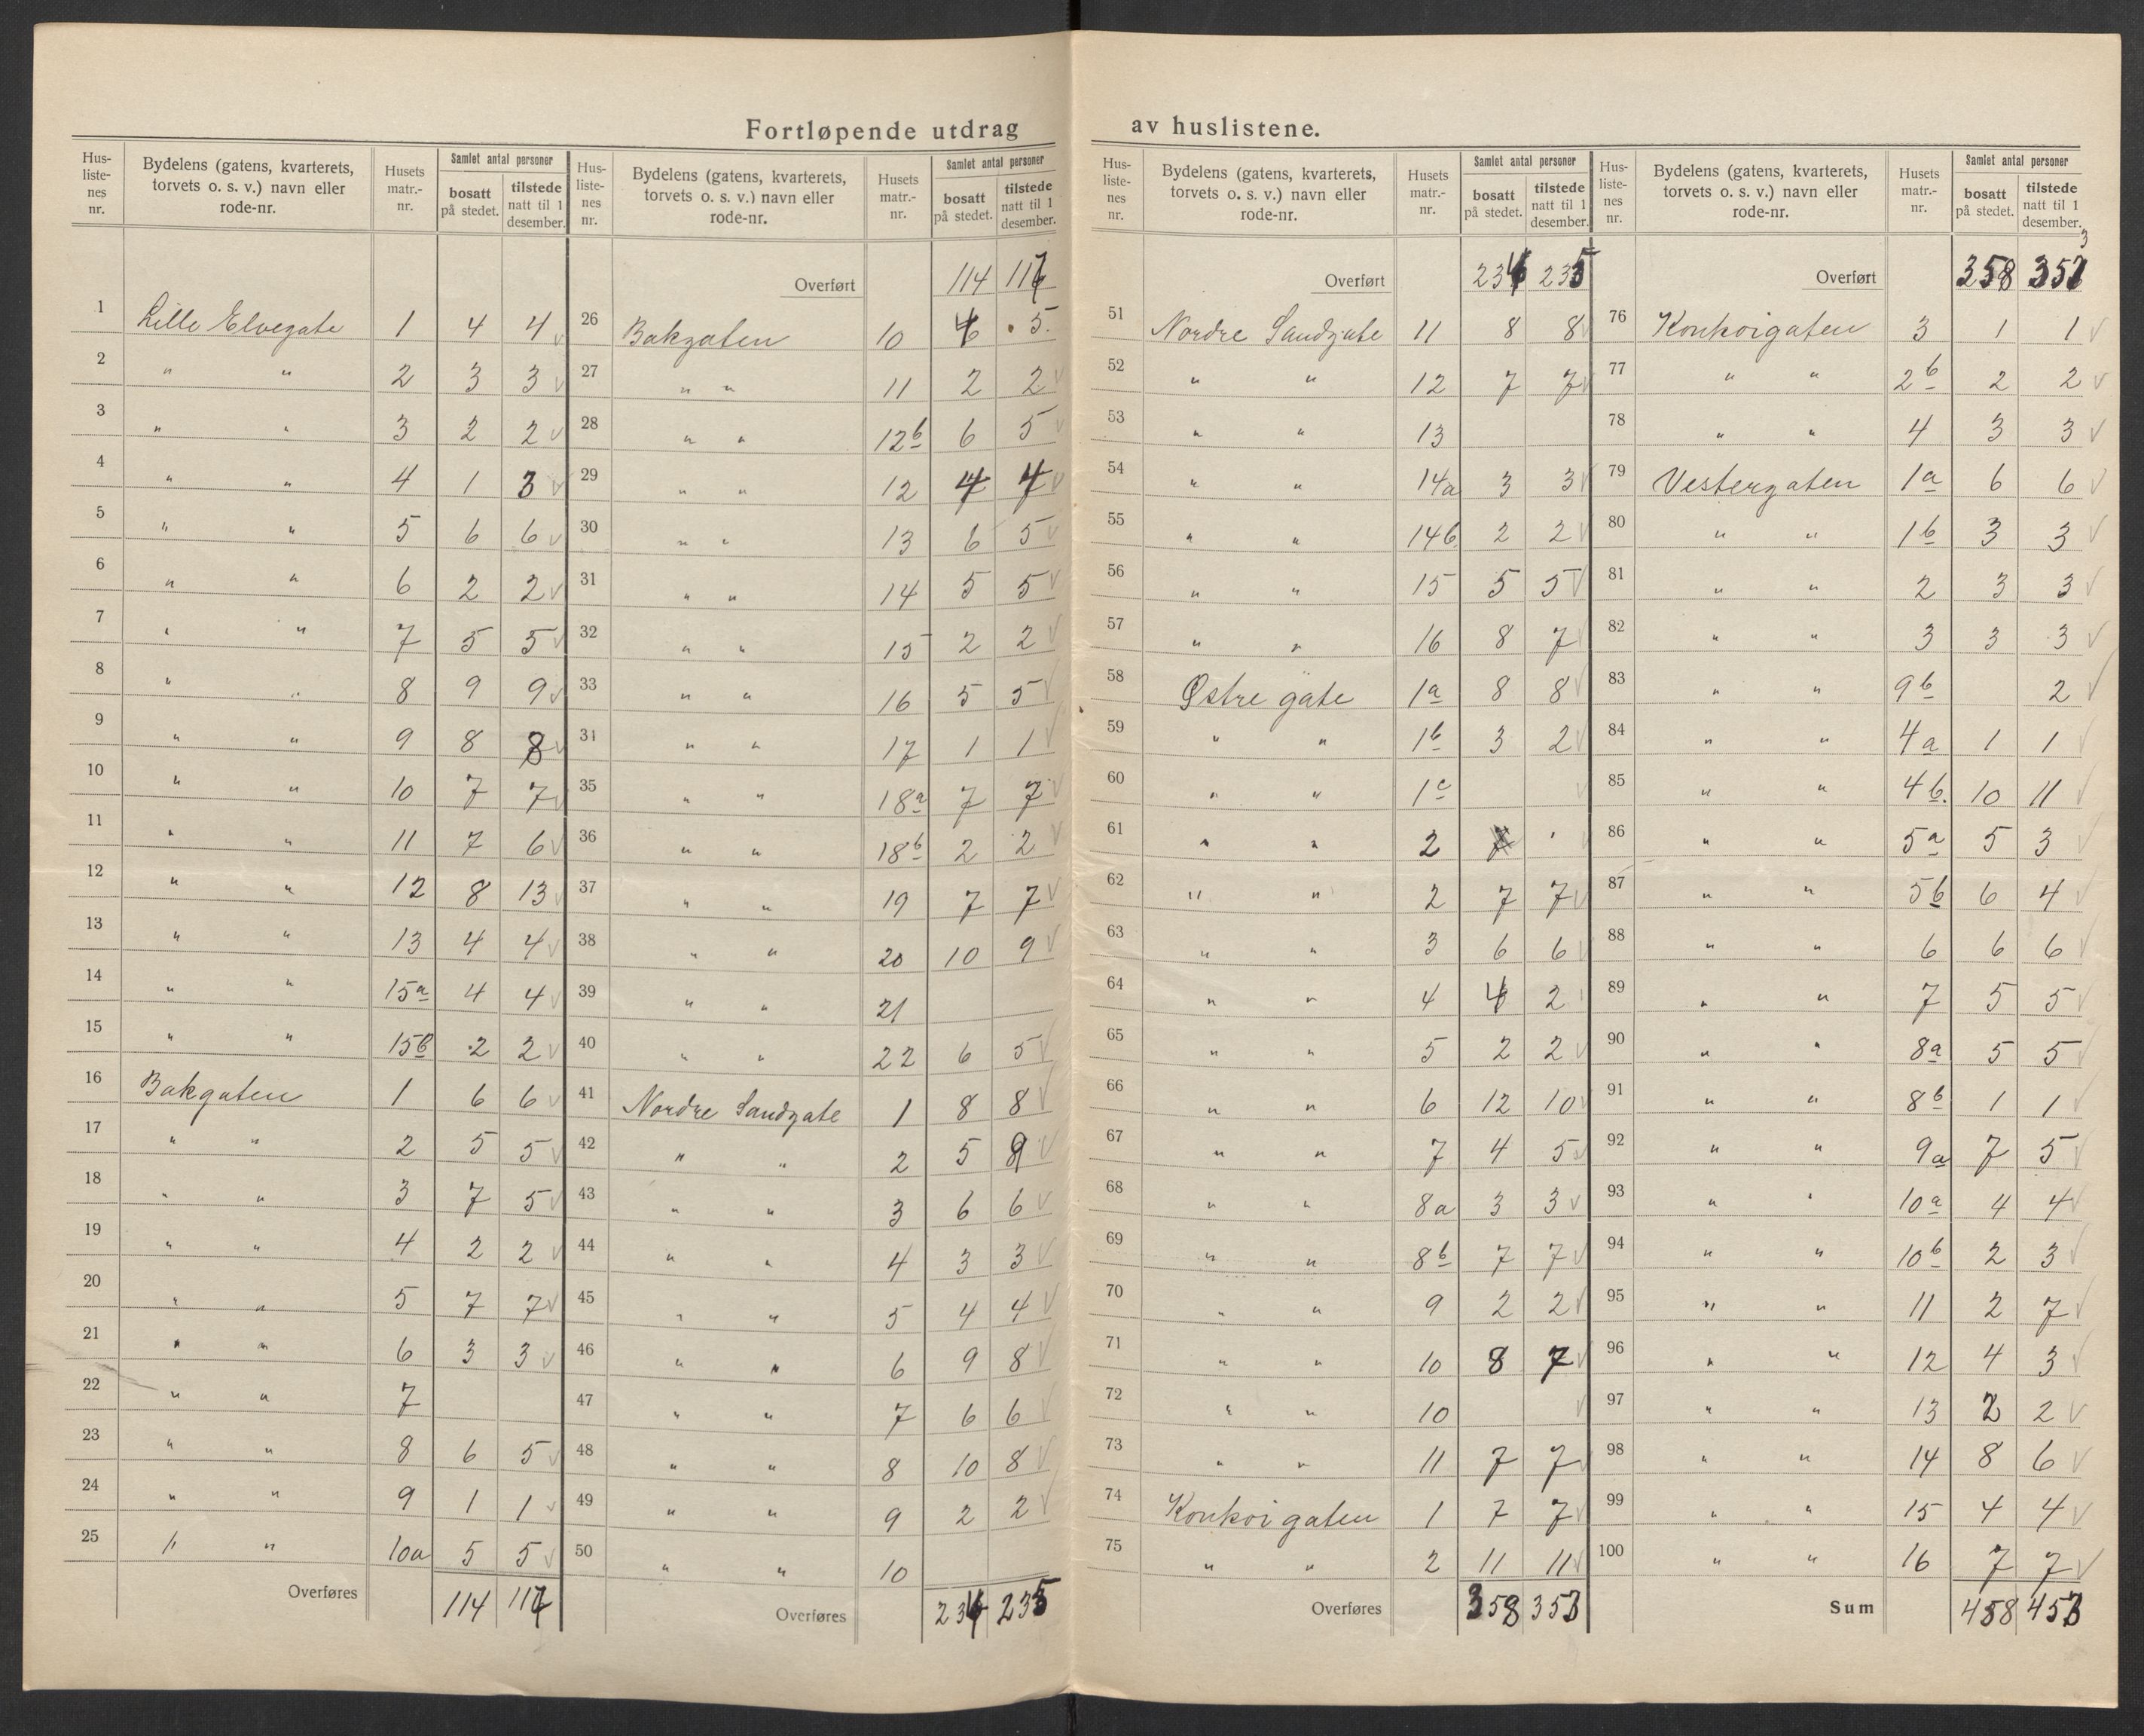 Fortløpende utdrag av huslistene.
Hus-liste-nes nr. | Bydelens (gatens, kvarterets, torvets o. s. v.) navn eller rode-nr. | Husets matr.-nr. | Samlet antal personer bosatt på stedet. | tilstede natt til 1 desember.
1 Lille Elvegate 1 4 4 v
2 " " 2 3 3 v
3 " " 3 2 2 v
4 " " 4 1 3 v
5 " " 5 6 6 v
6 " " 6 2 2 v
7 " " 7 5 5 v
8 " " 8 9 9 v
9 " " 9 8 8 v
10 " " 10 7 7 v
11 " " 11 7 6 v
12 " " 12 8 13 v
13 " " 13 4 4 v
14 " " 15a 4 4 v
15 " " 15b 2 2 v
16 Bakgaten 1 6 6 v
17 " " 2 5 5 v
18 " " 3 7 5 v
19 " " 4 2 2 v
20 " " 5 7 7 v
21 " " 6 3 3 v
22 " " 7
23 " " 8 6 5 v
24 " " 9 1 1 v
25 " " 10a 5 5 v
Overføres 114 117
Hus-liste-nes nr. | Bydelens (gatens, kvarterets, torvets o. s. v.) navn eller rode-nr. | Husets matr.-nr. | Samlet antal personer bosatt på stedet. | tilstede natt til 1 desember.
Overført 114 117
26 Bakgaten 10 5
27 " " 11 2 2 v
28 " " 12b 6 5 v
29 " " 12 4 4 v
30 " " 13 6 5 v
31 " " 14 5 5 v
32 " " 15 2 2 v
33 " " 16 5 5 v
31 " " 17 1 1 v
35 " " 18a 7 7 v
36 " " 18b 2 2 v
37 " " 19 7 7 v
38 " " 20 10 9 v
39 " " 21
40 " " 22 6 5 v
41 Nordre Sandgate 1 8 8 v
42 " " 2 5 9 v
43 " " 3 6 6 v
44 " " 4 3 3 v
45 " " 5 4 4 v
46 " " 6 9 8 v
47 " " 7 6 6 v
48 " " 8 10 8 v
49 " " 9 2 2 v
50 " " 10
Overføres 234 235
Hus-liste-nes nr. | Bydelens (gatens, kvarterets, torvets o. s. v.) navn eller rode-nr. | Husets matr.-nr. | Samlet antal personer bosatt på stedet. | tilstede natt til 1 desember.
Overført 234 235
51 Nordre Sandgate 11 8 8 v
52 " " 12 7 7 v
53 " " 13
54 " " 14a 3 3 v
55 " " 14b 2 2 v
56 " " 15 5 5 v
57 " " 16 8 7 v
58 Østre gate 1a 8 8 v
59 " " 1b 3 2 v
60 " " 1c v
61 " " 2
62 " " 2 7 7 v
63 " " 3 6 6 v
64 " " 4 4 2
65 " " 5 2 2 v
66 " " 6 12 10 v
67 " " 7 4 5 v
68 " " 8a 3 3 v
69 " " 8b 7 7 v
70 " " 9 2 2 v
71 " " 10 8 7 v
72 " " 10 v
73 " " 11 7 7 v
74 Konkoigaten 1 7 7 v
75 " " 2 11 11 v
Overføres 358 353
Hus-liste-nes nr. | Bydelens (gatens, kvarterets, torvets o. s. v.) navn eller rode-nr. | Husets matr.-nr. | Samlet antal personer bosatt på stedet. | tilstede natt til 1 desember.
Overført 358 353
76 Konkoigaten 3 1 1 v
77 " " 2b 2 2 v
78 " " 4 3 3 v
79 Vestergaten 1a 6 6 v
80 " " 1b 3 3 v
81 " " 2 3 3 v
82 " " 3 3 3 v
83 " " 9b 2 v
84 " " 4a 1 1 v
85 " " 4b. 10 11 v
86 " " 5a 5 3 v
87 " " 5b 6 4 v
88 " " 6 6 6 v
89 " " 7 5 5 v
90 " " 8a 5 5 v
91 " " 8b 1 1 v
92 " " 9a 7 5 v
93 " " 10a 4 4 v
94 " " 10b 2 3 v
95 " " 11 2 7 v
96 " " 12 4 3 v
97 " " 13 2 2 v
98 " " 14 8 6 v
99 " " 15 4 4 v
100 " " 16 7 7 v
Sum 458 453